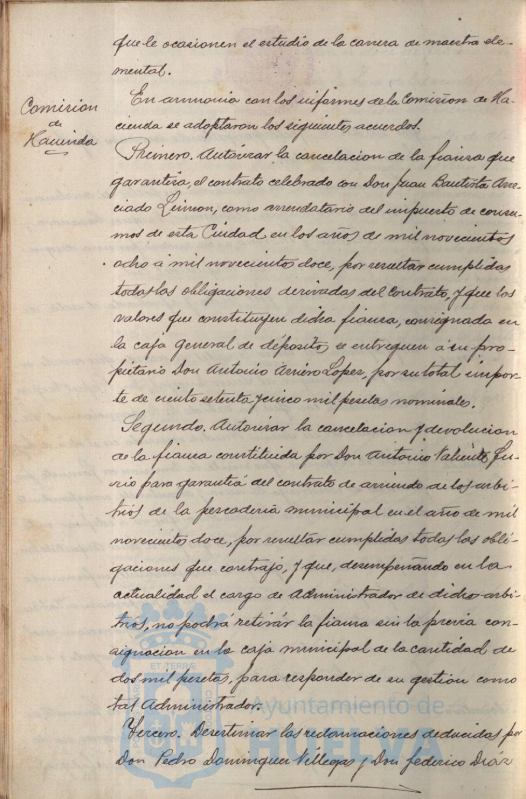 que le ocasionen el estudio de la carrera de maestra ele-
mental.
Comision
de
Hacienda
En armonia con los informes de la Comisión de Ha-
cienda se adoptaron los siguientes acuerdos.
Primero. Autorizar la cancelacion de la fianza que
garantiza, el contrato celebrado con Don Juan Bautista
ciado Limon, como arrendatario del impuesto de consu-
mos de esta Ciudad en los años de mil novecientos
ocho á mil novecientos doce, por resultar cumplidas
todas las obligaciones derivadas del Contrato, y que los
valores que constituyen dicha fianza, consignada en
la caja general de depósito, se entreguen á su pro-
pietario Don Antonio Arriero Lopez, por su total impor-
te de ciento setenta y cinco mil pesetas nominales.
Segundo. Autorizar la cancelacion y devolucion
de la fianza constituida por Don Antonio Valiente
rio para garantia del contrato de arriendo de los arbi-
trios de la pescaderia municipal en el año de mil
novecientos doce, por resultar cumplidas todas las obli-
gaciones que contrajo, y que, desempeñando en la
actualidad el cargo de Administrador de dichos arbi-
trios, no podrá retirar la fianza sin la previa con-
signacion en la caja municipal de la cantidad de
dos mil pesetas, para responder de su gestion como
tal Administrador.
Tercero. Desestimar las reclamaciones deducidas por
Don Pedro Dominguez Villegas y Don Federico Diáz
Ayuntamiento de
HUELVA